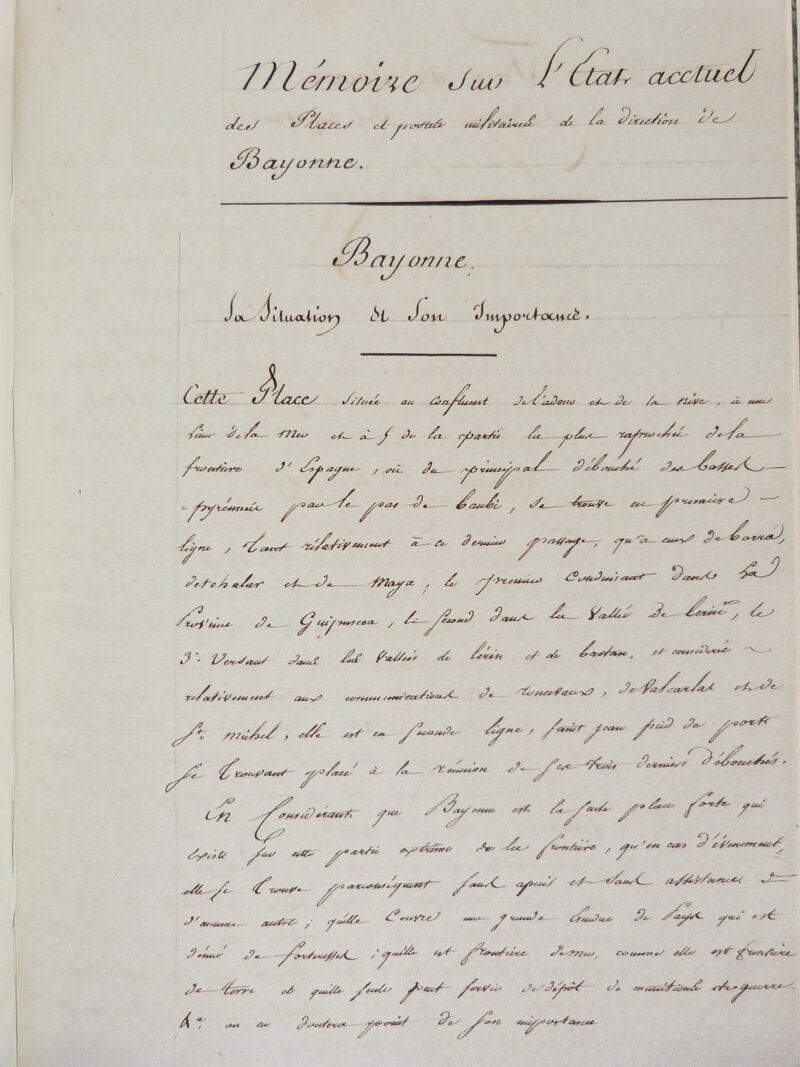 Mémoire sur L'Etat acctuel
des Places et postes militaires de la direction de
Bayonne.
Bayonne.
Sa Situation et Son Importance.
Cette Place située au confluent de l'adour et de la nive, à une
lieue de la Mer et à 5 de la partie la plus raprochée de la
frontiere d'Espagne, où du principal débouché des basses
pyrénnées par le pas de , se trouve en premiere
ligne, tant rélativement à ce dernier passage, qu'a ceux de
detchalar et de Maya; le premier Conduisant dans La
Province de Guipuscoa, le second dans la Vallée de , le
3e. Versant dans les Vallées de lérin et de bastan, et considérée
relativement aux communications de roncevaux, de Valcarlos et de
St. michel, elle est en seconde ligne, saint jean pied de port
se Trouvant placé à la réunion de ses trois derniers débouchés.
En Considérant que Bayonne est la seule place forte qui
existe sur cette partie extrême de la frontière, qu'en cas d'événement,
elle se Trouve parconséquent sans apuis et sans assistance
d'aucune autre; qu'elle Couvre une grande étendue de Pays qui est
dénué de forteresses; qu'elle est frontière de mer, comme elle est frontière
de terre et qu'elle seule peut servir de dépôt de munitions de guerre
on ne doutera point de son importance